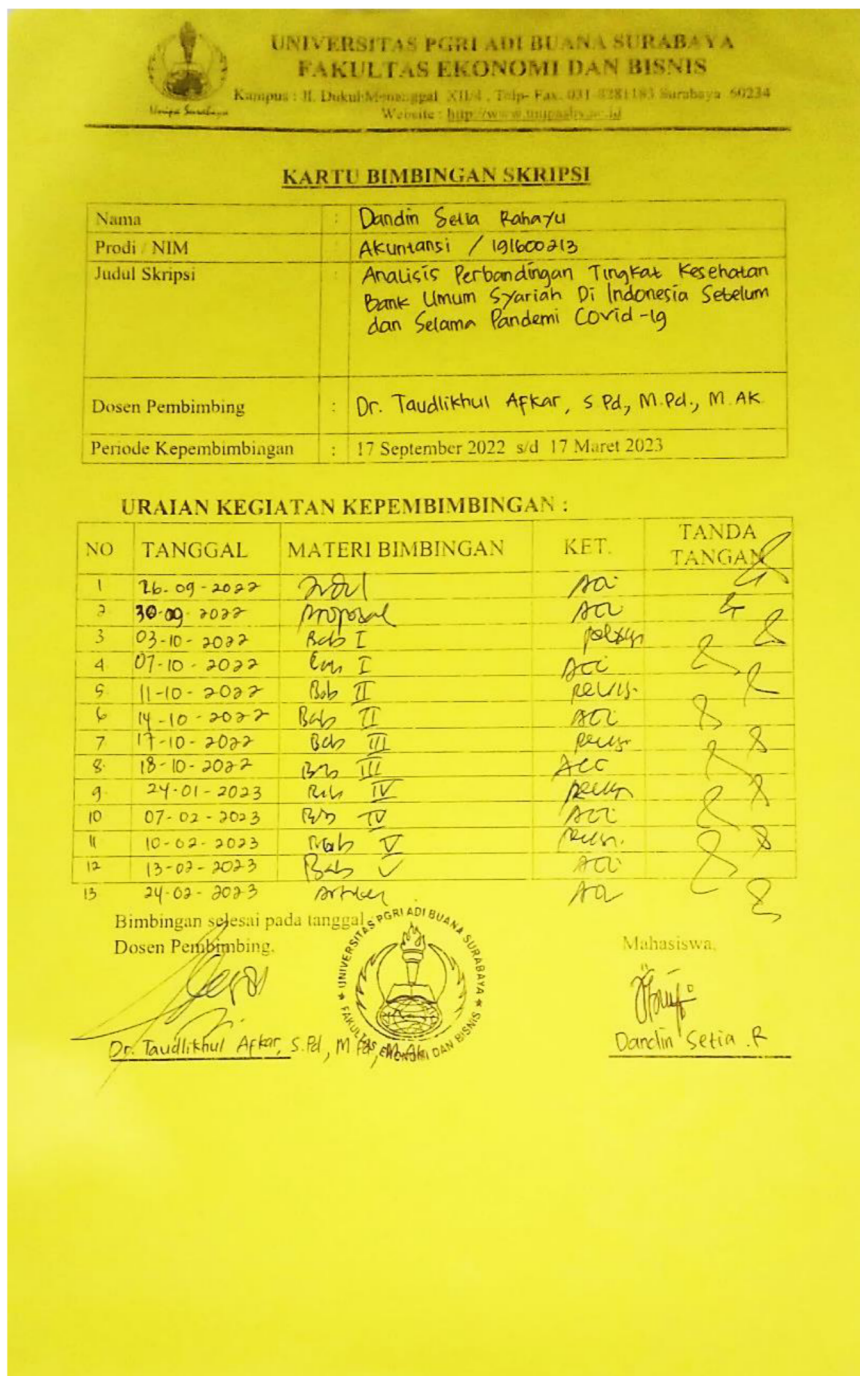 UNIVERSITAS PGRI ADI BUANA SURABAYA
FAKULTAS EKONOMI DAN BISNIS
Kampus : Jl. Dukuh Menanggal XII/4 , Telp- Fax. 031-8281183 Surabaya 60234
Website : http://www.unipasby.ac.id
Unipa Surabaya
KARTU BIMBINGAN SKRIPSI
Nama : Dandin Setia Rahayu
Prodi / NIM : Akuntansi / 191600213
Judul Skripsi : Analisis Perbandingan Tingkat Kesehatan
Bank Umum Syariah Di Indonesia Sebelum
dan Selama Pandemi Covid-19
Dosen Pembimbing : Dr. Taudlikhul Afkar, S.Pd, M.Pd., M.AK
Periode Kepembimbingan : 17 September 2022 s/d 17 Maret 2023
URAIAN KEGIATAN KEPEMBIMBINGAN :
NO TANGGAL MATERI BIMBINGAN KET. TANDA TANGAN
1 26-09-2022 Judul Acc
2 30-09-2022 Proposal Acc
3 03-10-2022 Bab I
4 07-10-2022 I Acc
5 11-10-2022 Bab II Revisi
6 14-10-2022 Bab II Acc
7 17-10-2022 Bab III Revisi
8 18-10-2022 Bab III Acc
9 24-01-2023 Bab IV Revisi
10 07-02-2023 Bab IV Acc
11 10-02-2023 Bab V Revisi
12 13-02-2023 Bab V Acc
13 24-02-2023 Artikel Acc
Bimbingan selesai pada tanggal
Dosen Pembimbing, Mahasiswa,
UNIVERSITAS PGRI ADI BUANA SURABAYA
FAKULTAS EKONOMI DAN BISNIS
Dr. Taudlikhul Afkar, S.Pd, M.Pd, M.Ak Dandin Setia .R